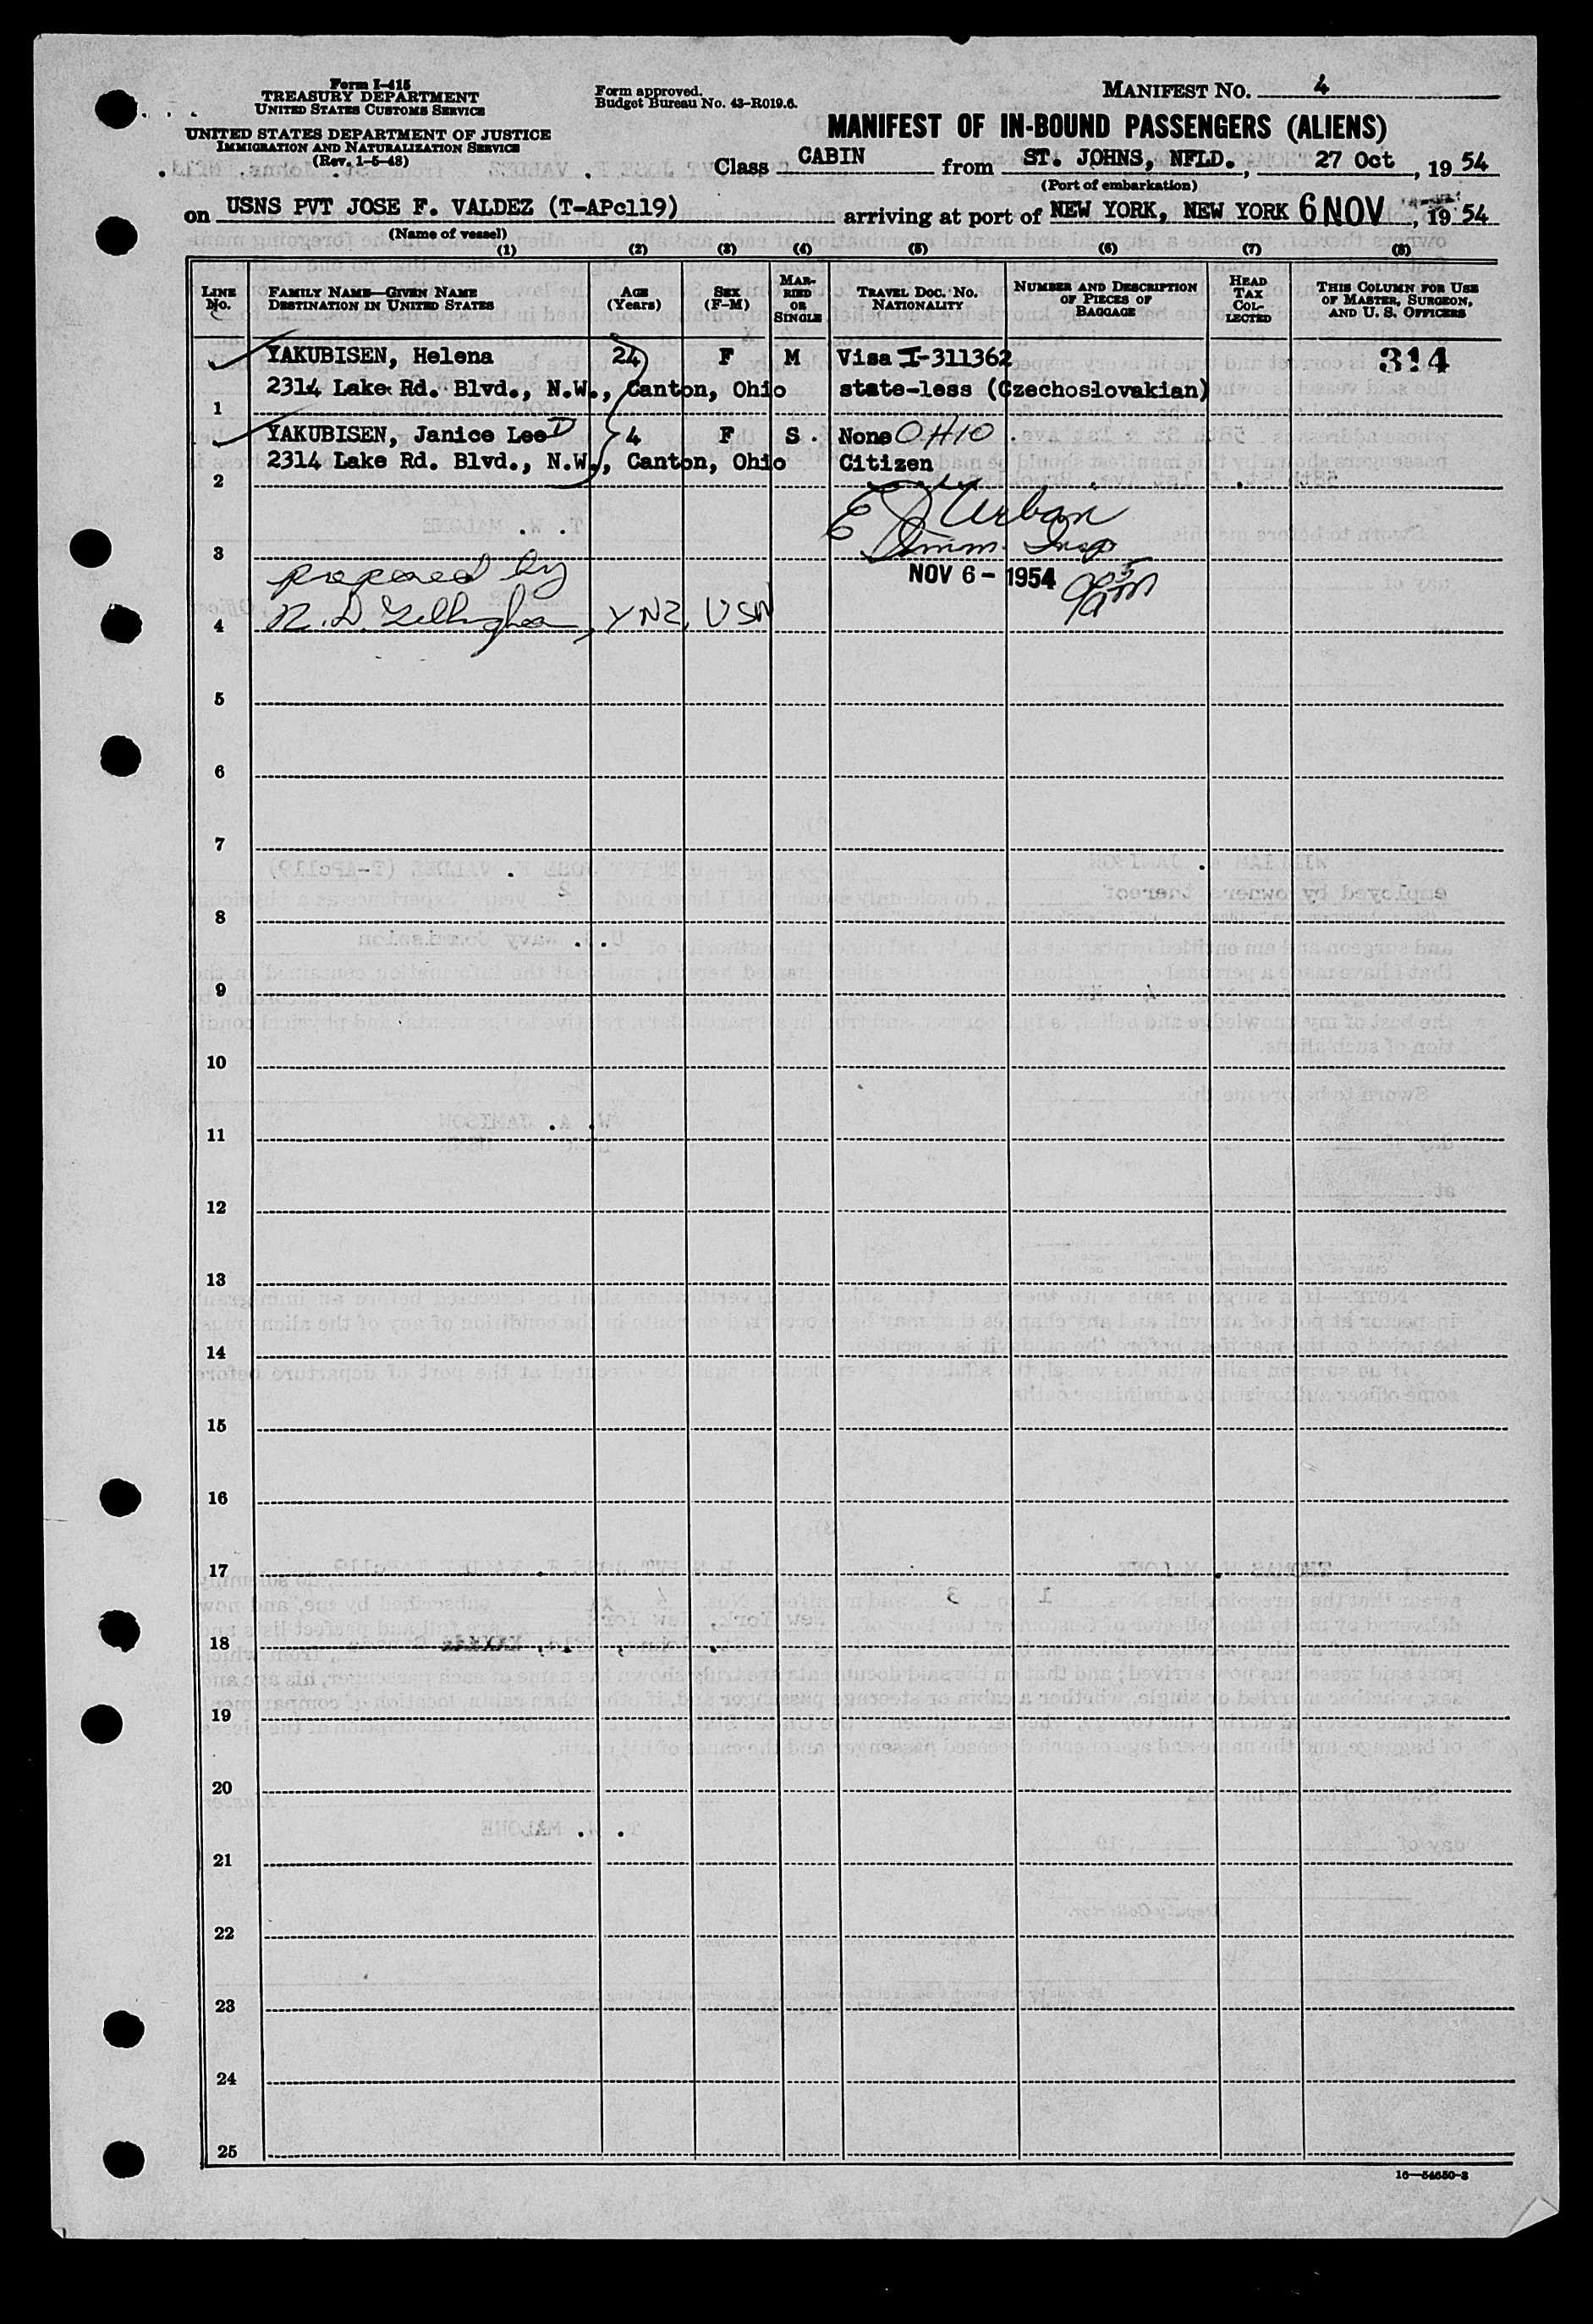 Form I-415
TREASURY DEPARTMENT
UNITED STATES CUSTOMS SERVICE
UNITED STATES DEPARTMENT OF JUSTICE
IMMIGRATION AND NATURALIZATION SERVICE
(Rev. 1-5-48)
Form approved.
Budget Bureau No. 43-R019.6.
MANIFEST NO. 4
MANIFEST OF IN-BOUND PASSENGERS (ALIENS)
Class CABIN from ST. JOHNS, NFLD., 27 Oct, 19 54
(Port of embarkation)
on USNS PVT JOSE F. VALDEZ (T-APc119) arriving at port of NEW YORK, NEW YORK 6 NOV, 19 54
(Name of vessel)
(1) (2) (3) (4) (5) (6) (7) (8)
LINE NO. FAMILY NAME—GIVEN NAME DESTINATION IN UNITED STATES AGE (Years) SEX (F-M) MARRIED OR SINGLE TRAVEL DOC. NO. NATIONALITY NUMBER AND DESCRIPTION OF PIECES OF BAGGAGE HEAD TAX COLLECTED THIS COLUMN FOR USE OF MASTER, SURGEON, AND U. S. OFFICERS
YAKUBISEN, Helena 24 F M Visa I-311362 314
1 2314 Lake Rd. Blvd., N.W., Canton, Ohio state-less (Czechoslovakian)
YAKUBISEN, Janice Lee D 4 F S. None OHIO.
2 2314 Lake Rd. Blvd., N.W., Canton, Ohio Citizen
E Urban
3 Imm. Insp
prepared by NOV 6 - 1954
4 YN2, USN
5
6
7
8
9
10
11
12
13
14
15
16
17
18
19
20
21
22
23
24
25
16—54650-3